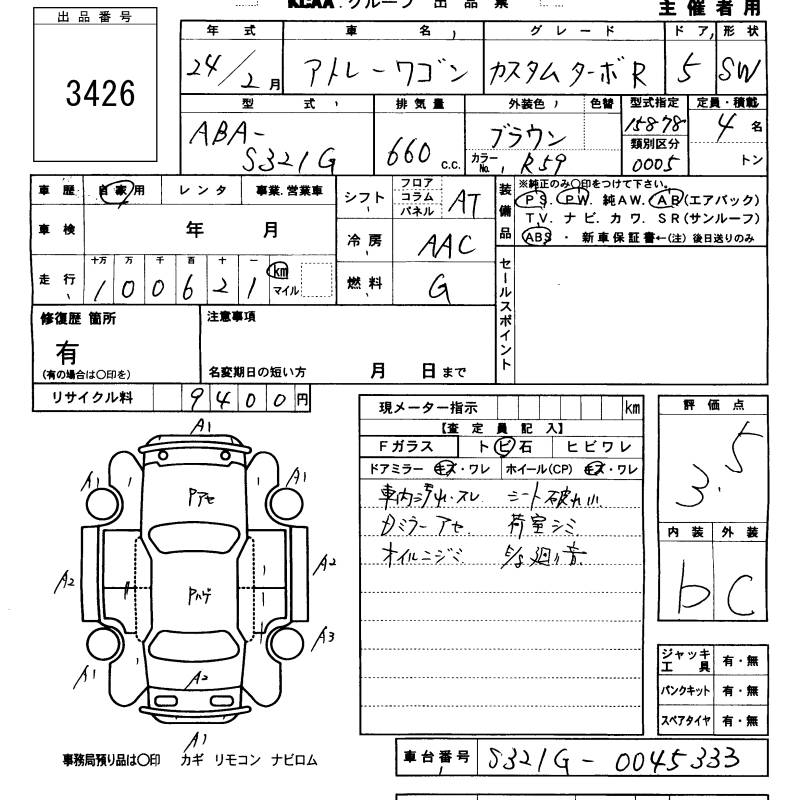 KCAA.グループ 出品票
主催者用
出品番号
3426
年式 車名 グレード ドア 形状
24/2月 アトレーワゴン カスタムターボR 5 SW
型式 排気量 外装色 色替 型式指定 定員・積載
ABA-S321G 660 c.c. ブラウン 15878 4名
カラーNo. R59 類別区分 0005 トン
車歴 自家用 レンタ 事業.営業車
シフト フロア コラム パネル AT
装備品 ※純正のみ○印をつけて下さい。
PS. PW. 純AW. AB(エアバック)
TV. ナビ. カワ. SR(サンルーフ)
ABS ・ 新車保証書←(注) 後日送りのみ
車検 年 月
冷房 AAC
走行 十万 万 千 百 十 一 km マイル
100621
燃料 G
セールスポイント
修復歴 箇所
有
(有の場合は○印を)
注意事項
名変期日の短い方 月 日まで
リサイクル料 9400円
現メーター指示 km
【査定員記入】
Fガラス トビ石 ヒビワレ
ドアミラー キズ・ワレ ホイール(CP) キズ・ワレ
車内汚れ・スレ シート破れ
Dミラーアセ 荷室シミ
オイルニジミ 廻り音
評価点
3.5
内装 外装
b C
A1
A1 Pアセ A1
A2 Pハゲ A2
A1 A2 A3
A1
ジャッキ工具 有・無
パンクキット 有・無
スペアタイヤ 有・無
事務局預り品は○印 カギ リモコン ナビロム
車台番号 S321G-0045333